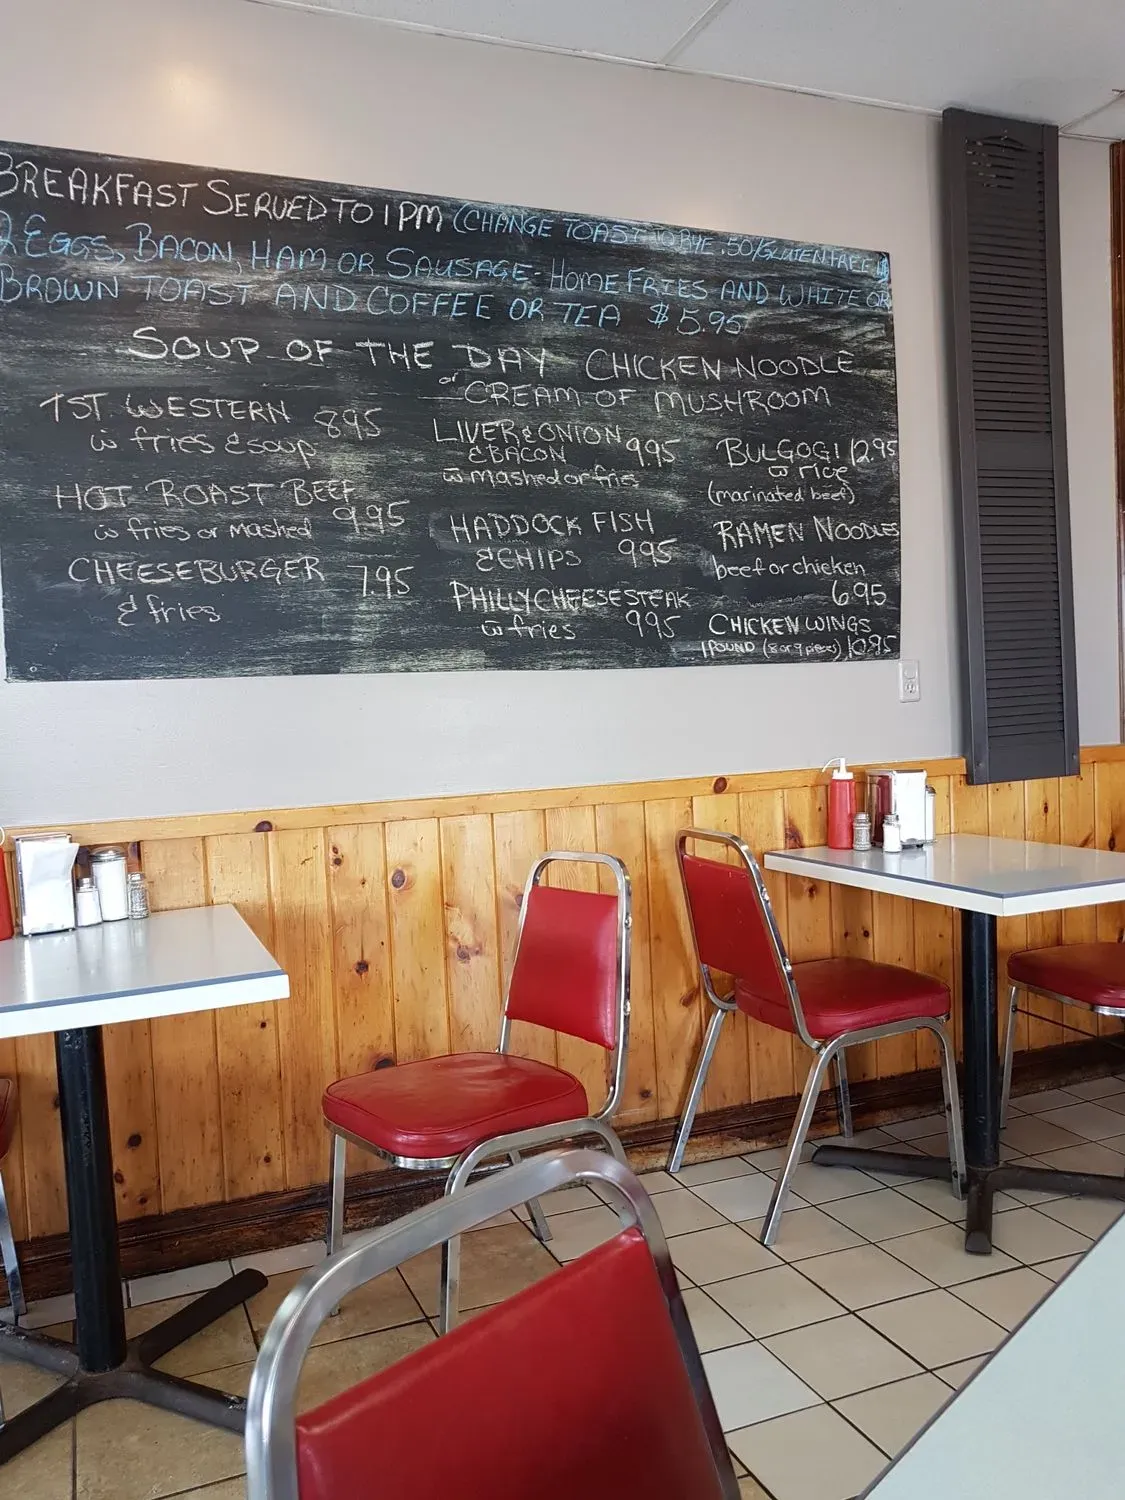 BREAKFAST SERVED TO 1PM (CHANGE TOAST TO RYE .50/GLUTEN FREE
2 EGGS, BACON, HAM OR SAUSAGE - HOME FRIES AND WHITE OR
BROWN TOAST AND COFFEE OR TEA $5.95
SOUP OF THE DAY CHICKEN NOODLE
or CREAM OF MUSHROOM
TST WESTERN 8.95
w fries & soup
HOT ROAST BEEF
w fries or mashed 9.95
CHEESEBURGER 7.95
& fries
LIVER & ONION
& BACON 9.95
w mashed or fries
HADDOCK FISH
& CHIPS 9.95
PHILLY CHEESESTEAK
w fries 9.95
BULGOGI 12.95
w rice
(marinated beef)
RAMEN NOODLES
beef or chicken
6.95
CHICKEN WINGS
1 POUND (8 or 9 pieces) 10.95